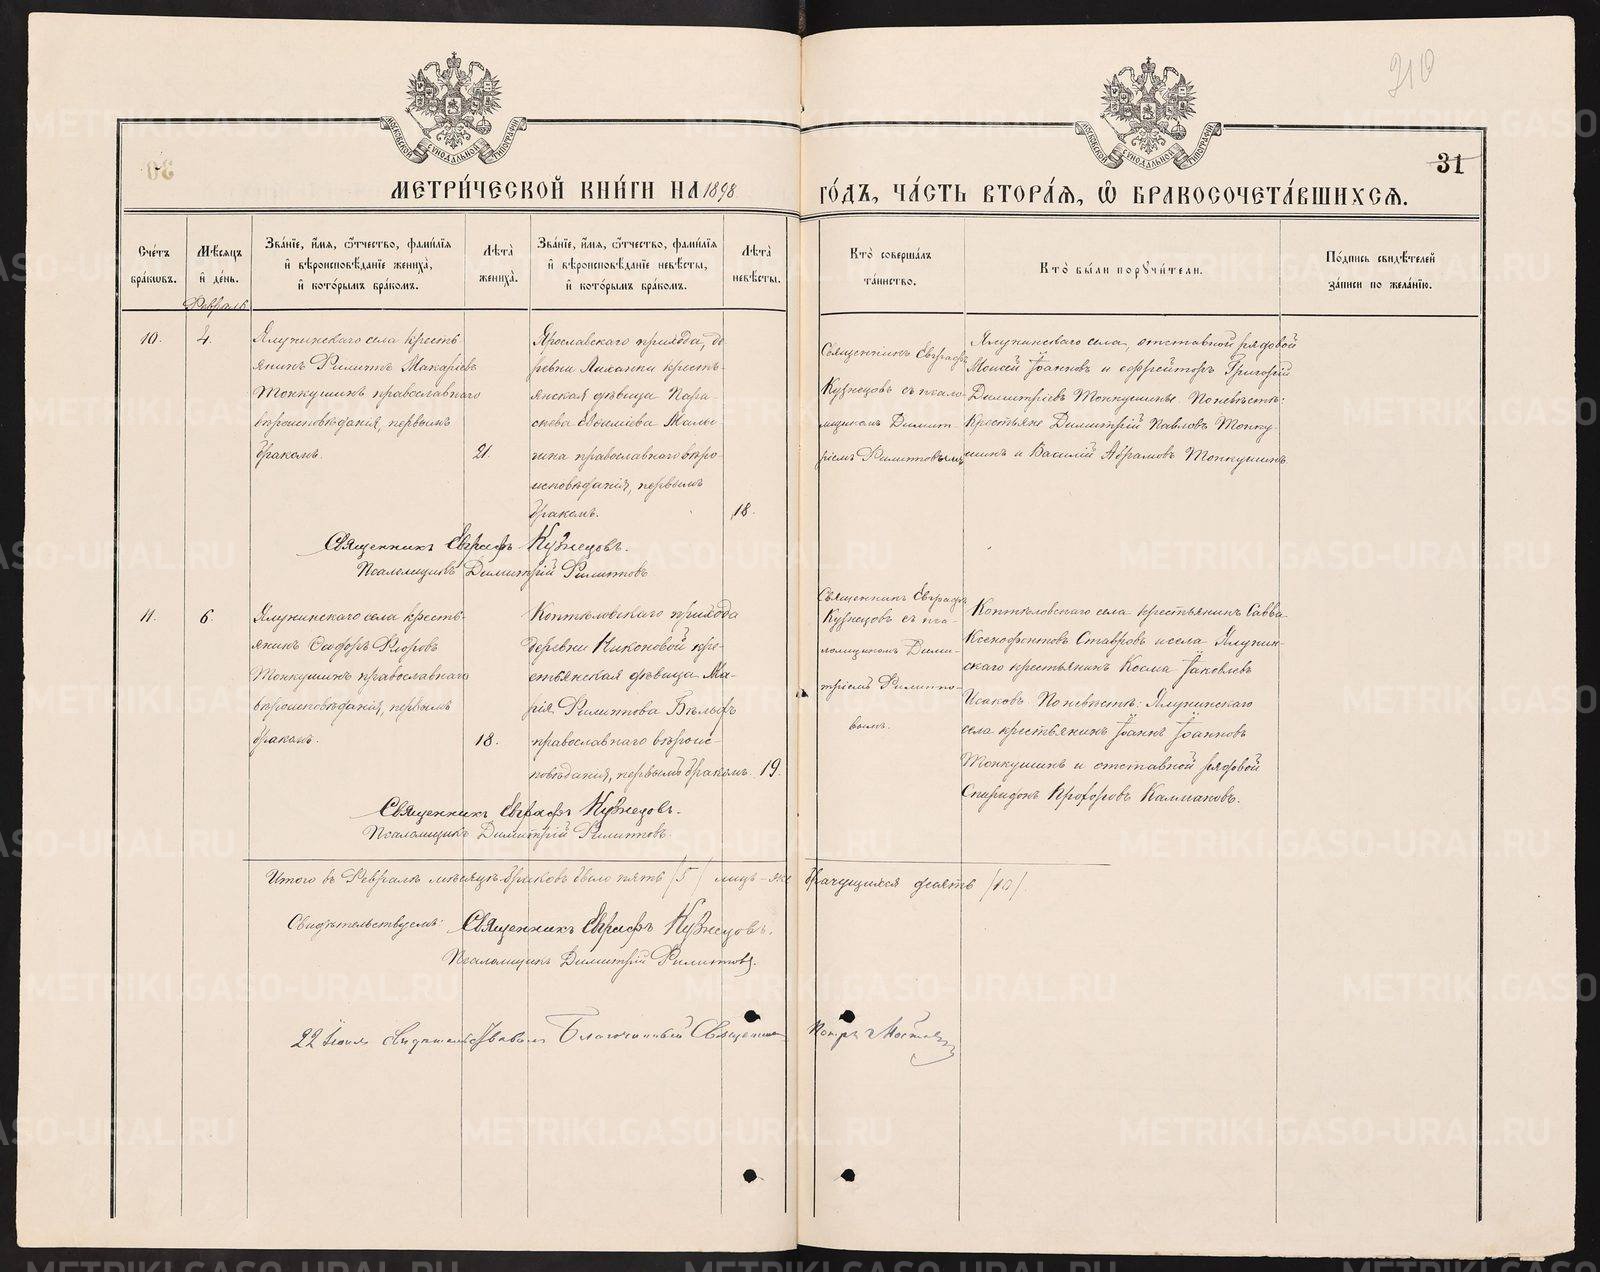 210
31
МОСКОВСКОЙ СѴНОДАЛЬНОЙ ТИПОГРАФІИ
МОСКОВСКОЙ СѴНОДАЛЬНОЙ ТИПОГРАФІИ
МЕТРИ́ЧЕСКОЙ КНИ́ГИ НА 1898 ГО́ДЪ, ЧА́СТЬ ВТОРА́Я, Ѽ БРАКОСОЧЕТА́ВШИХСЯ.
Сче́тъ бра́кωвъ.
Мѣ́сяцъ и҆ де́нь.
Зва́нїе, и҆́мя, ѻ҆́тчество, фами́лїя
и҆ вѣроисповѣ́данїе жениха̀,
и҆ кото́рымъ бра́комъ.
Лѣта̀ жениха̀.
Зва́нїе, и҆́мя, ѻ҆́тчество, фами́лїя
и҆ вѣроисповѣ́данїе невѣ́сты,
и҆ кото́рымъ бра́комъ.
Лѣта̀ невѣ́сты.
Кто̀ соверша́лъ
та́инство.
Кто̀ бы́ли порꙋчи́тели.
По́дпись свидѣ́телей
за́писи по жела́нїю.
Февраль
10.
4.
Ялунинскаго села кресть-
янинъ Филиппъ Макаріевъ
Топкушинъ православнаго
вѣроисповѣданія, первымъ
бракомъ.
21.
Ярославскаго прихода, де
ревни крестъ-
янская дѣвица Пара-
скева
чина православнаго вѣро
исповѣданія, первымъ
бракомъ.
18.
Священникъ Евграфъ
Кузнецовъ съ псало-
мщикомъ Димит-
ріемъ Филипповымъ
Ялунинскаго села, отставной рядовой
Моисей Іоанновъ и ефрейторъ Григорій
Димитріевъ Топкушины. По невѣстѣ:
Крестьяне Димитрій Павловъ Топку-
шинъ и Василій Абрамовъ Топкушинъ
Священникъ Евграфъ Кузнецовъ.
Псаломщикъ Димитрій Филипповъ
11.
6.
Ялунинскаго села кресть-
янинъ Флоровъ
Топкушинъ православнаго
вѣроисповѣданія, первымъ
бракомъ.
18.
Коптѣловскаго прихода
деревни Никоновой кре-
стьянская дѣвица Ма-
рія Филиппова Бѣлыхъ
православнаго вѣроис-
повѣданія, первымъ бракомъ.
19.
Священникъ Евграфъ
Кузнецовъ съ пса-
ломщикомъ Дими-
тріемъ Филиппо-
вымъ.
Коптѣловскаго села крестьянинъ Савва
Ксенофонтовъ Ставровъ и села Ялунин-
скаго крестьянинъ Косма Іаковлевъ
Исаковъ По невѣстѣ: Ялунинскаго
села крестьянинъ Іоаннъ Іоанновъ
Топкушинъ и отставной рядовой
Спиридонъ Прохоровъ Калмаковъ.
Священникъ Евграфъ Кузнецовъ.
Псаломщикъ Димитрій Филипповъ.
Итого въ Февралѣ мѣсяцѣ браковъ было пять /5/ лицъ же брачущихся десять /10/.
Свидѣтельствуемъ: Священникъ Евграфъ Кузнецовъ.
Псаломщикъ Димитрій Филипповъ.
22 Іюля свидѣтельствовалъ Благочинный Священникъ Петръ
METRIKI.GASO-URAL.RU